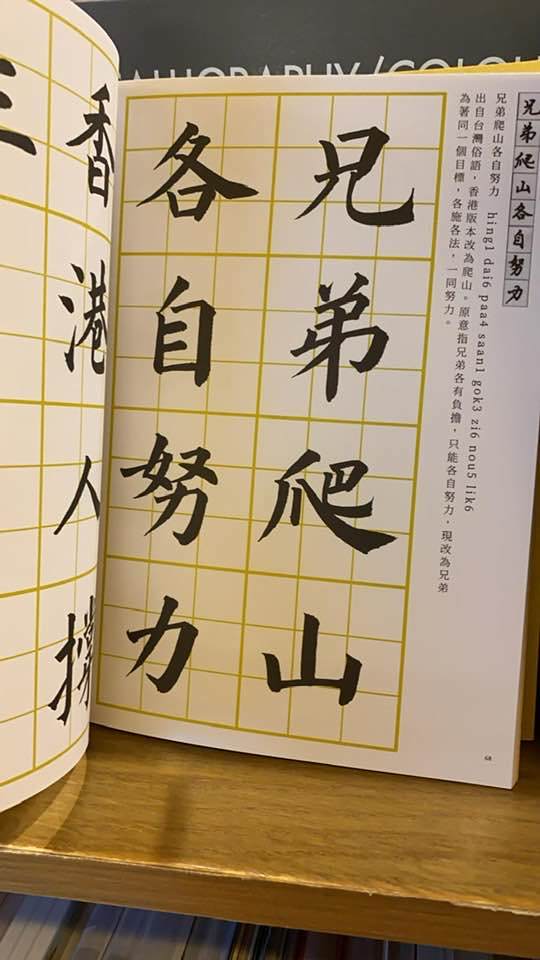 CALLIGRAPHY/COLOU
兄弟爬山各自努力
兄弟爬山各自努力 hing1 dai6 paa4 saan1 gok3 zi6 nou5 lik6
出自台灣俗語，香港版本改為爬山。原意指兄弟各有負擔，只能各自努力，現改為兄弟
為著同一個目標，各施各法，一同努力。
兄弟爬山
各自努力
香港人撐
三
68